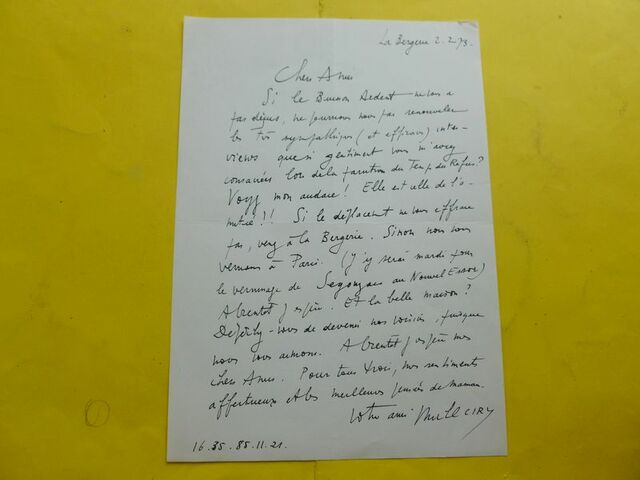 La Bergerie 2.2.73.
Chers Amis
Si le Buisson Ardent ne vous a
pas déçus, ne pourrions nous pas renouveler
les très sympathiques (et efficaces) inter-
views que si gentiment vous m'avez
consacrées lors de la parution du Temps du Refus?
Voyez mon audace! Elle est celle de l'a-
mitié!! Si le déplacement ne vous effraie
pas, venez à la Bergerie. Sinon nous nous
verrons à Paris. (J'y serai mardi pour
le vernissage de Segonzac au Nouvel Essor)
A bientôt j'espère. Et la belle maison?
Dépêchez-vous de devenir nos voisins, puisque
nous vous aimons. A bientôt j'espère mes
chers Amis. Pour tous trois, mes sentiments
affectueux et les meilleures pensées de maman.
Votre ami Michel CIRY
16.35.85.11.21